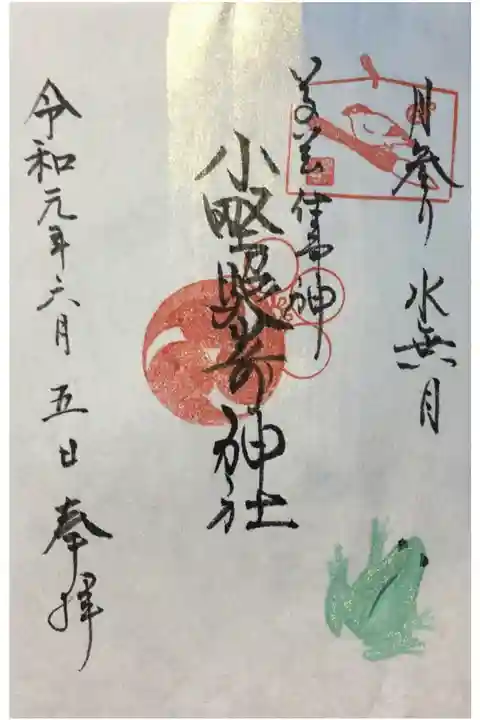 月参り 水無月
仕事神
小野照崎神社
令和元年六月五日 奉拝